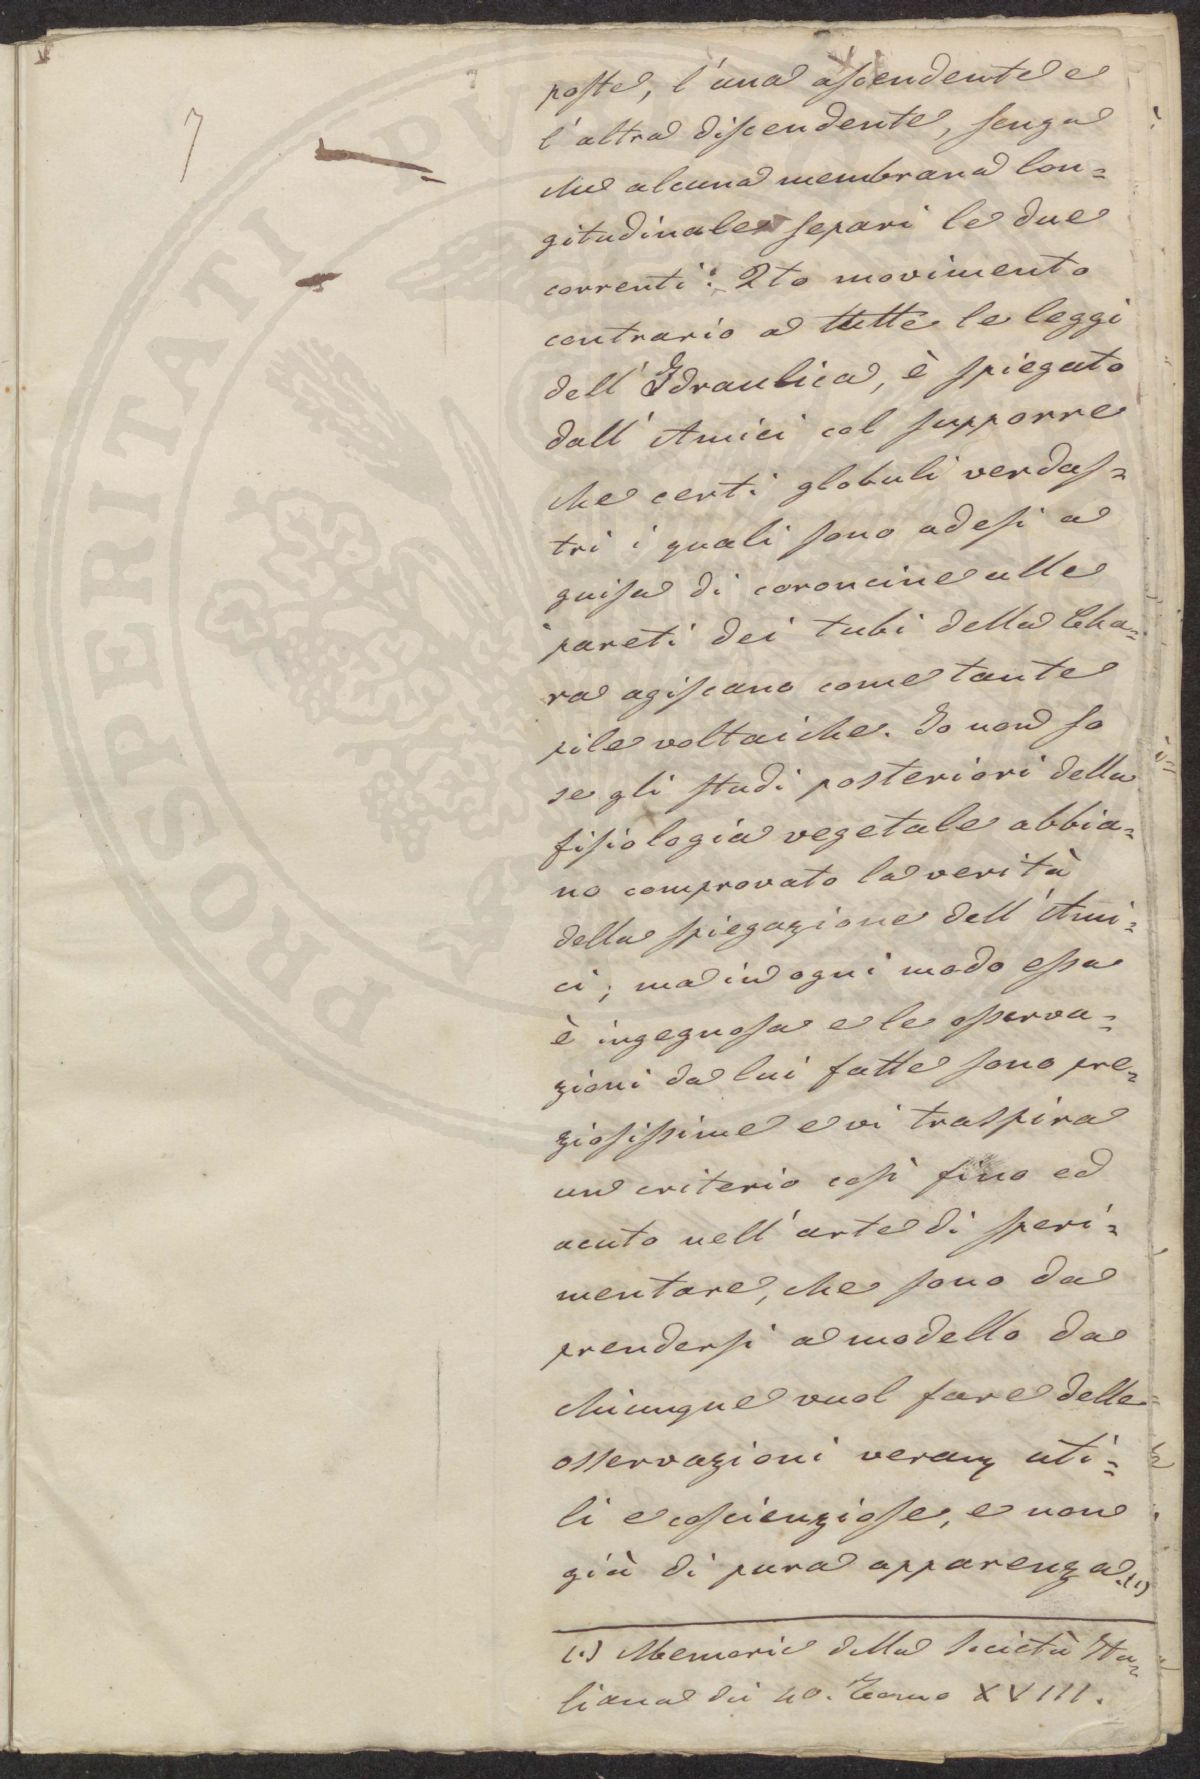 7
poste, l'una ascendente e
l'altra discendente, senza
che alcuna membrana lon=
gitudinale separi le due
correnti: Qto movimento
contrario a tutte le leggi
dell'Idraulica, è spiegato
dall'Amici col supporre
che certi globuli verdas=
tri i quali sono adesi a
guisa di coroncine alle
pareti dei tubi della Cha=
ra agiscano come tante
pile voltaiche. Io non so
se gli studi posteriori della
fisiologia vegetale abbia=
no comprovato la verità
della spiegazione dell'Ami=
ci; ma in ogni modo essa
è ingegnosa e le osserva=
zioni da lui fatte sono pre=
ziosissime e vi traspira
un criterio così fino ed
acuto nell'arte di speri=
mentare, che sono da
prendersi a modello da
chiunque vuol fare delle
osservazioni veram uti=
li e coscienziose, e non
già di pura apparenza.(1)
(1) Memorie della Società Ita=
liana dei 40. Tomo XVIII.
PROSPERITATI PV